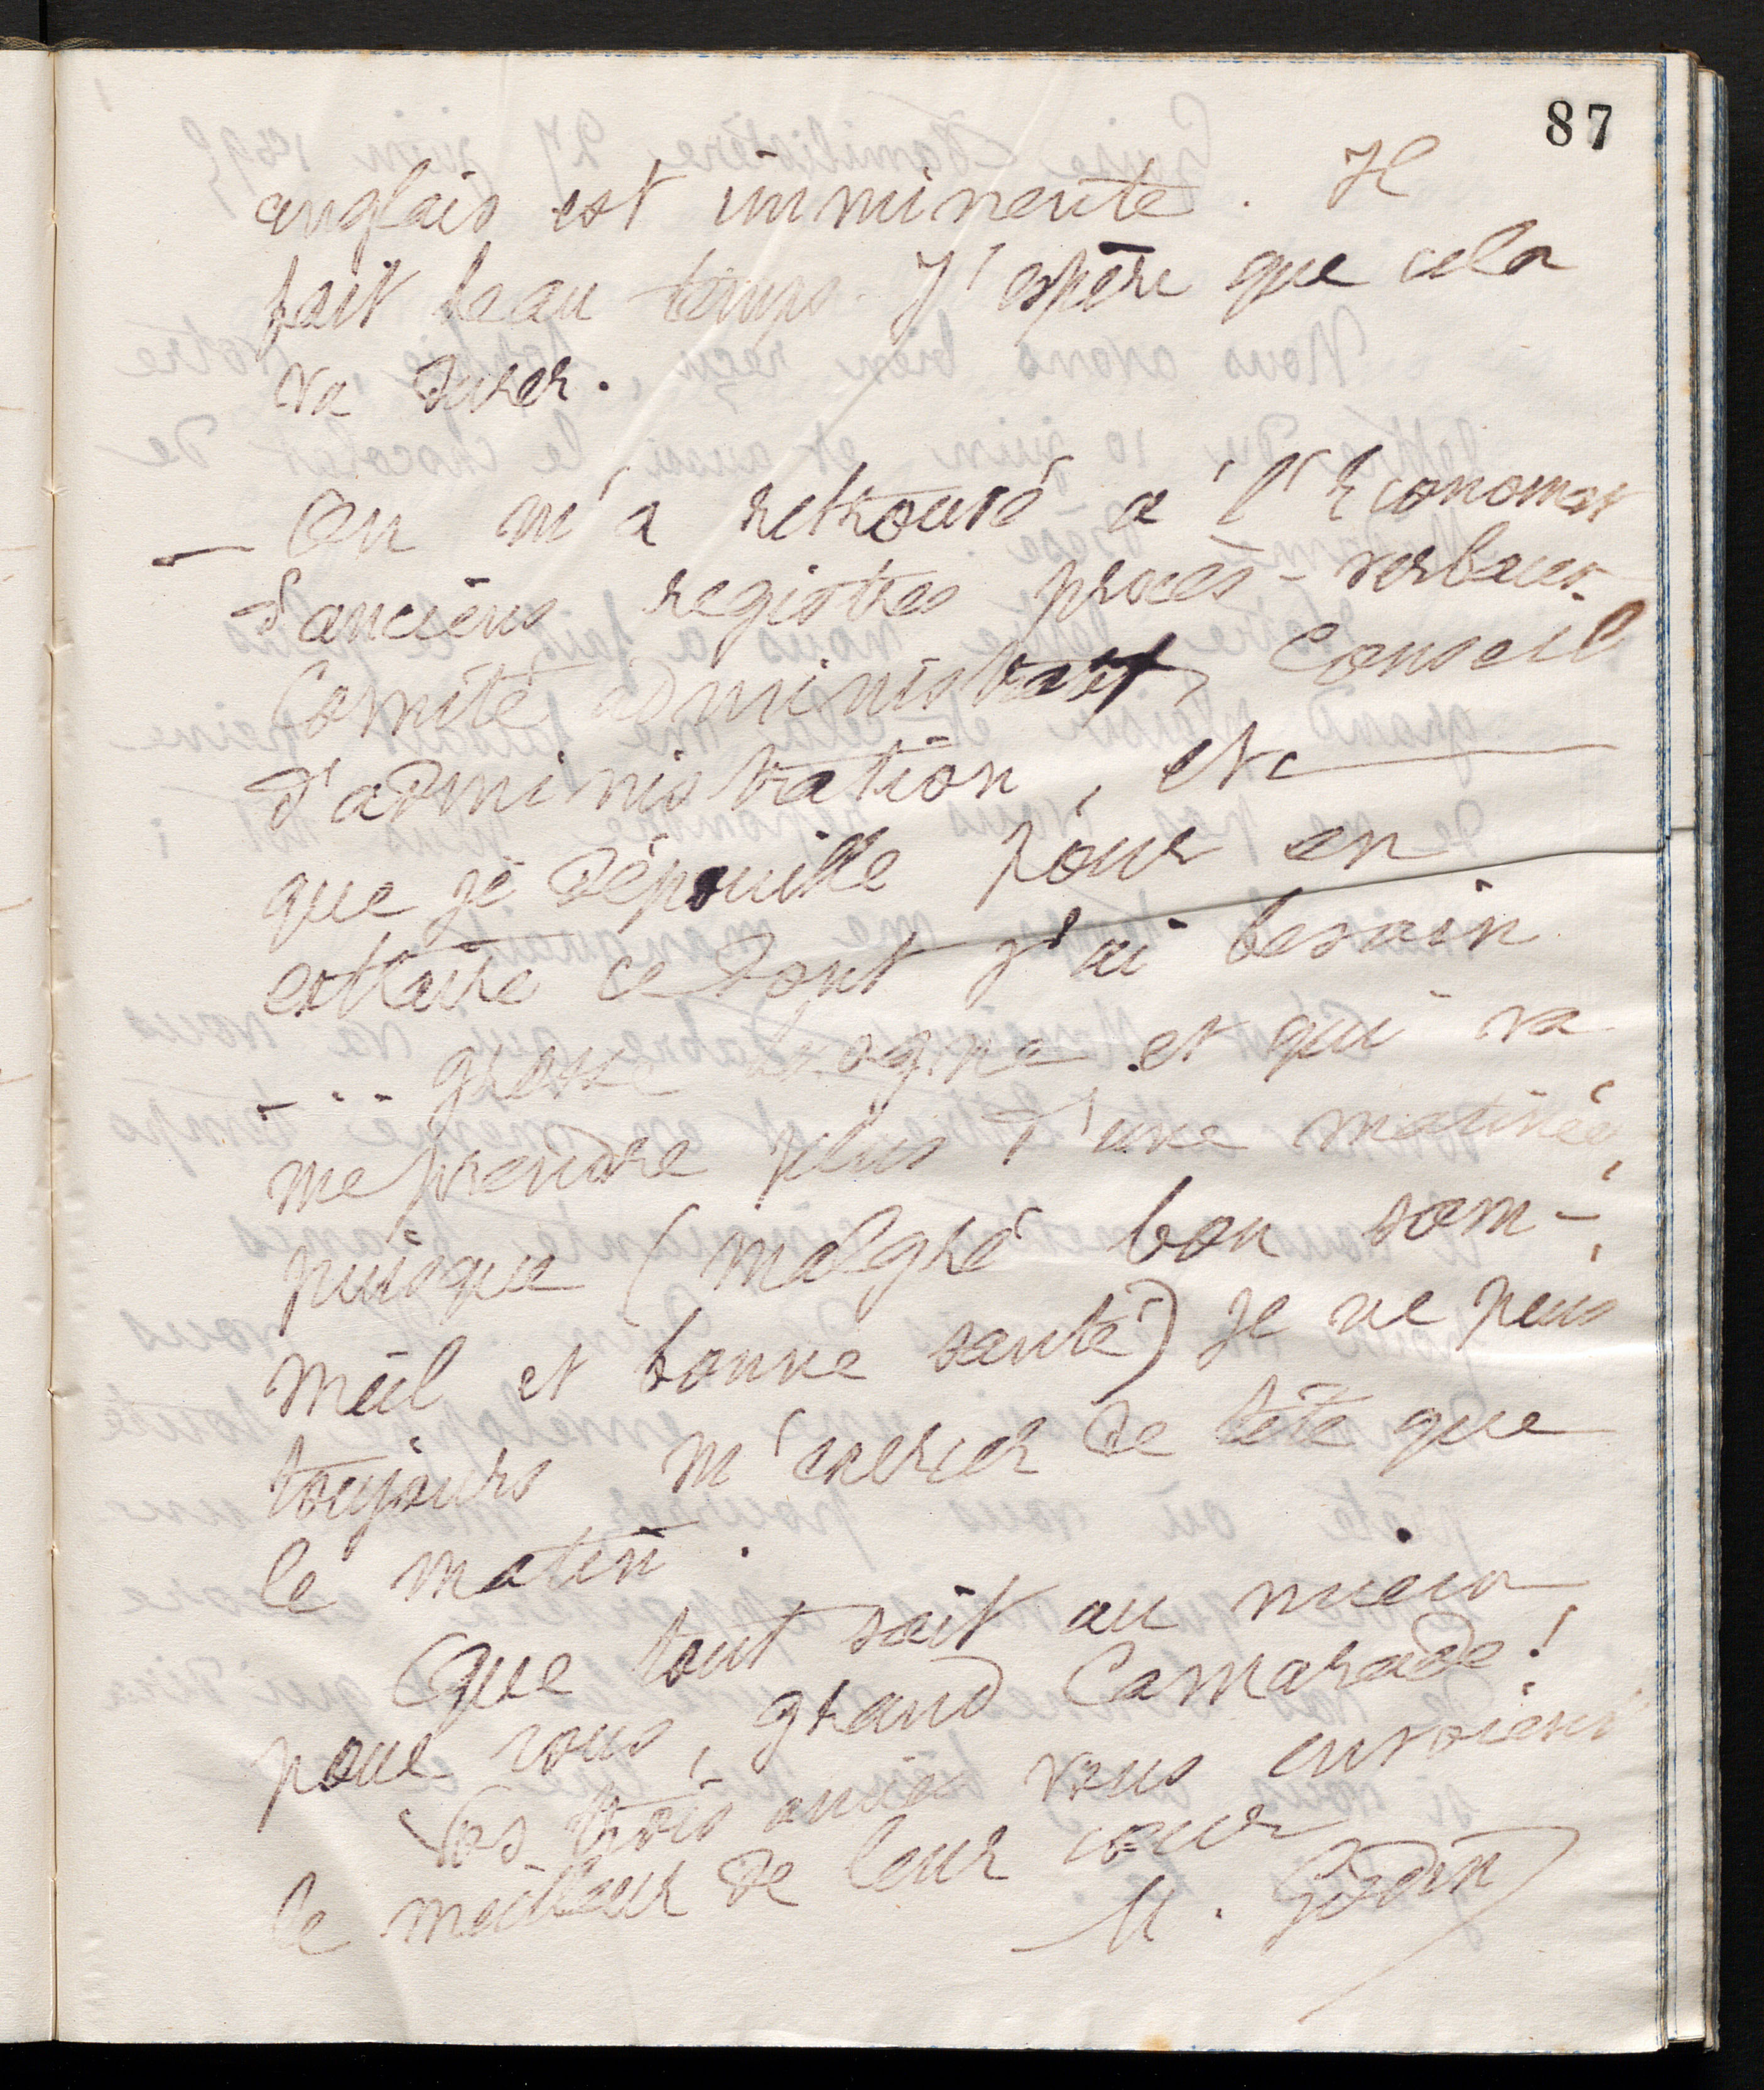 87
anglais est imminente. Il
fait beau temps. J'espère que cela
va durer.
— On m'a retrouvé à l'Economat
d'anciens registres procès-verbaux
Comité administratif, Conseil
d'administration, etc
que je dépouille pour en
extraire ce dont j'ai besoin
... grosse besogne et qui va
me prendre plus d'une matinée,
puisque (malgré bon som-
meil et bonne santé) je ne puis
toujours m'exercer de tête que
le matin.
Que tout soit au mieux
pour vous, grand Camarade!
Vos trois amies vous envoient
le meilleur de leur cœur
M. Godin